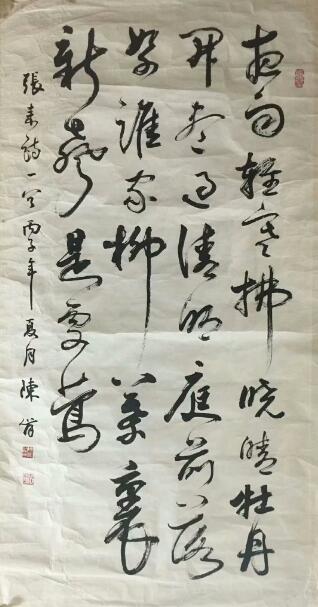 夜雨輕寒拂晓晴牡丹
開盡過清明庭前落
絮誰家柳葉裏
新聲是處鶯
張耒詩一首丙子年夏月陳